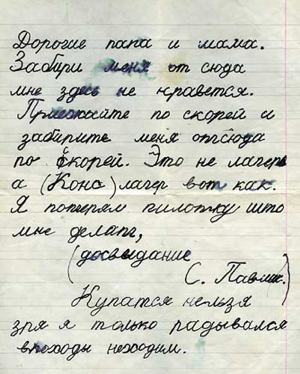 Дорогие папа и мама.
Забири меня от сюда
мне здесь не нравется.
Приезжайте по скорей и
забирите меня отсюда
по скорей. Это не лагерь
а (Конс) лагер вот как.
Я потерял пилотку што
мне делать,
(досвидание
С. Павлик.)
Купатся нельзя
зря я только радывался
в походы неходим.